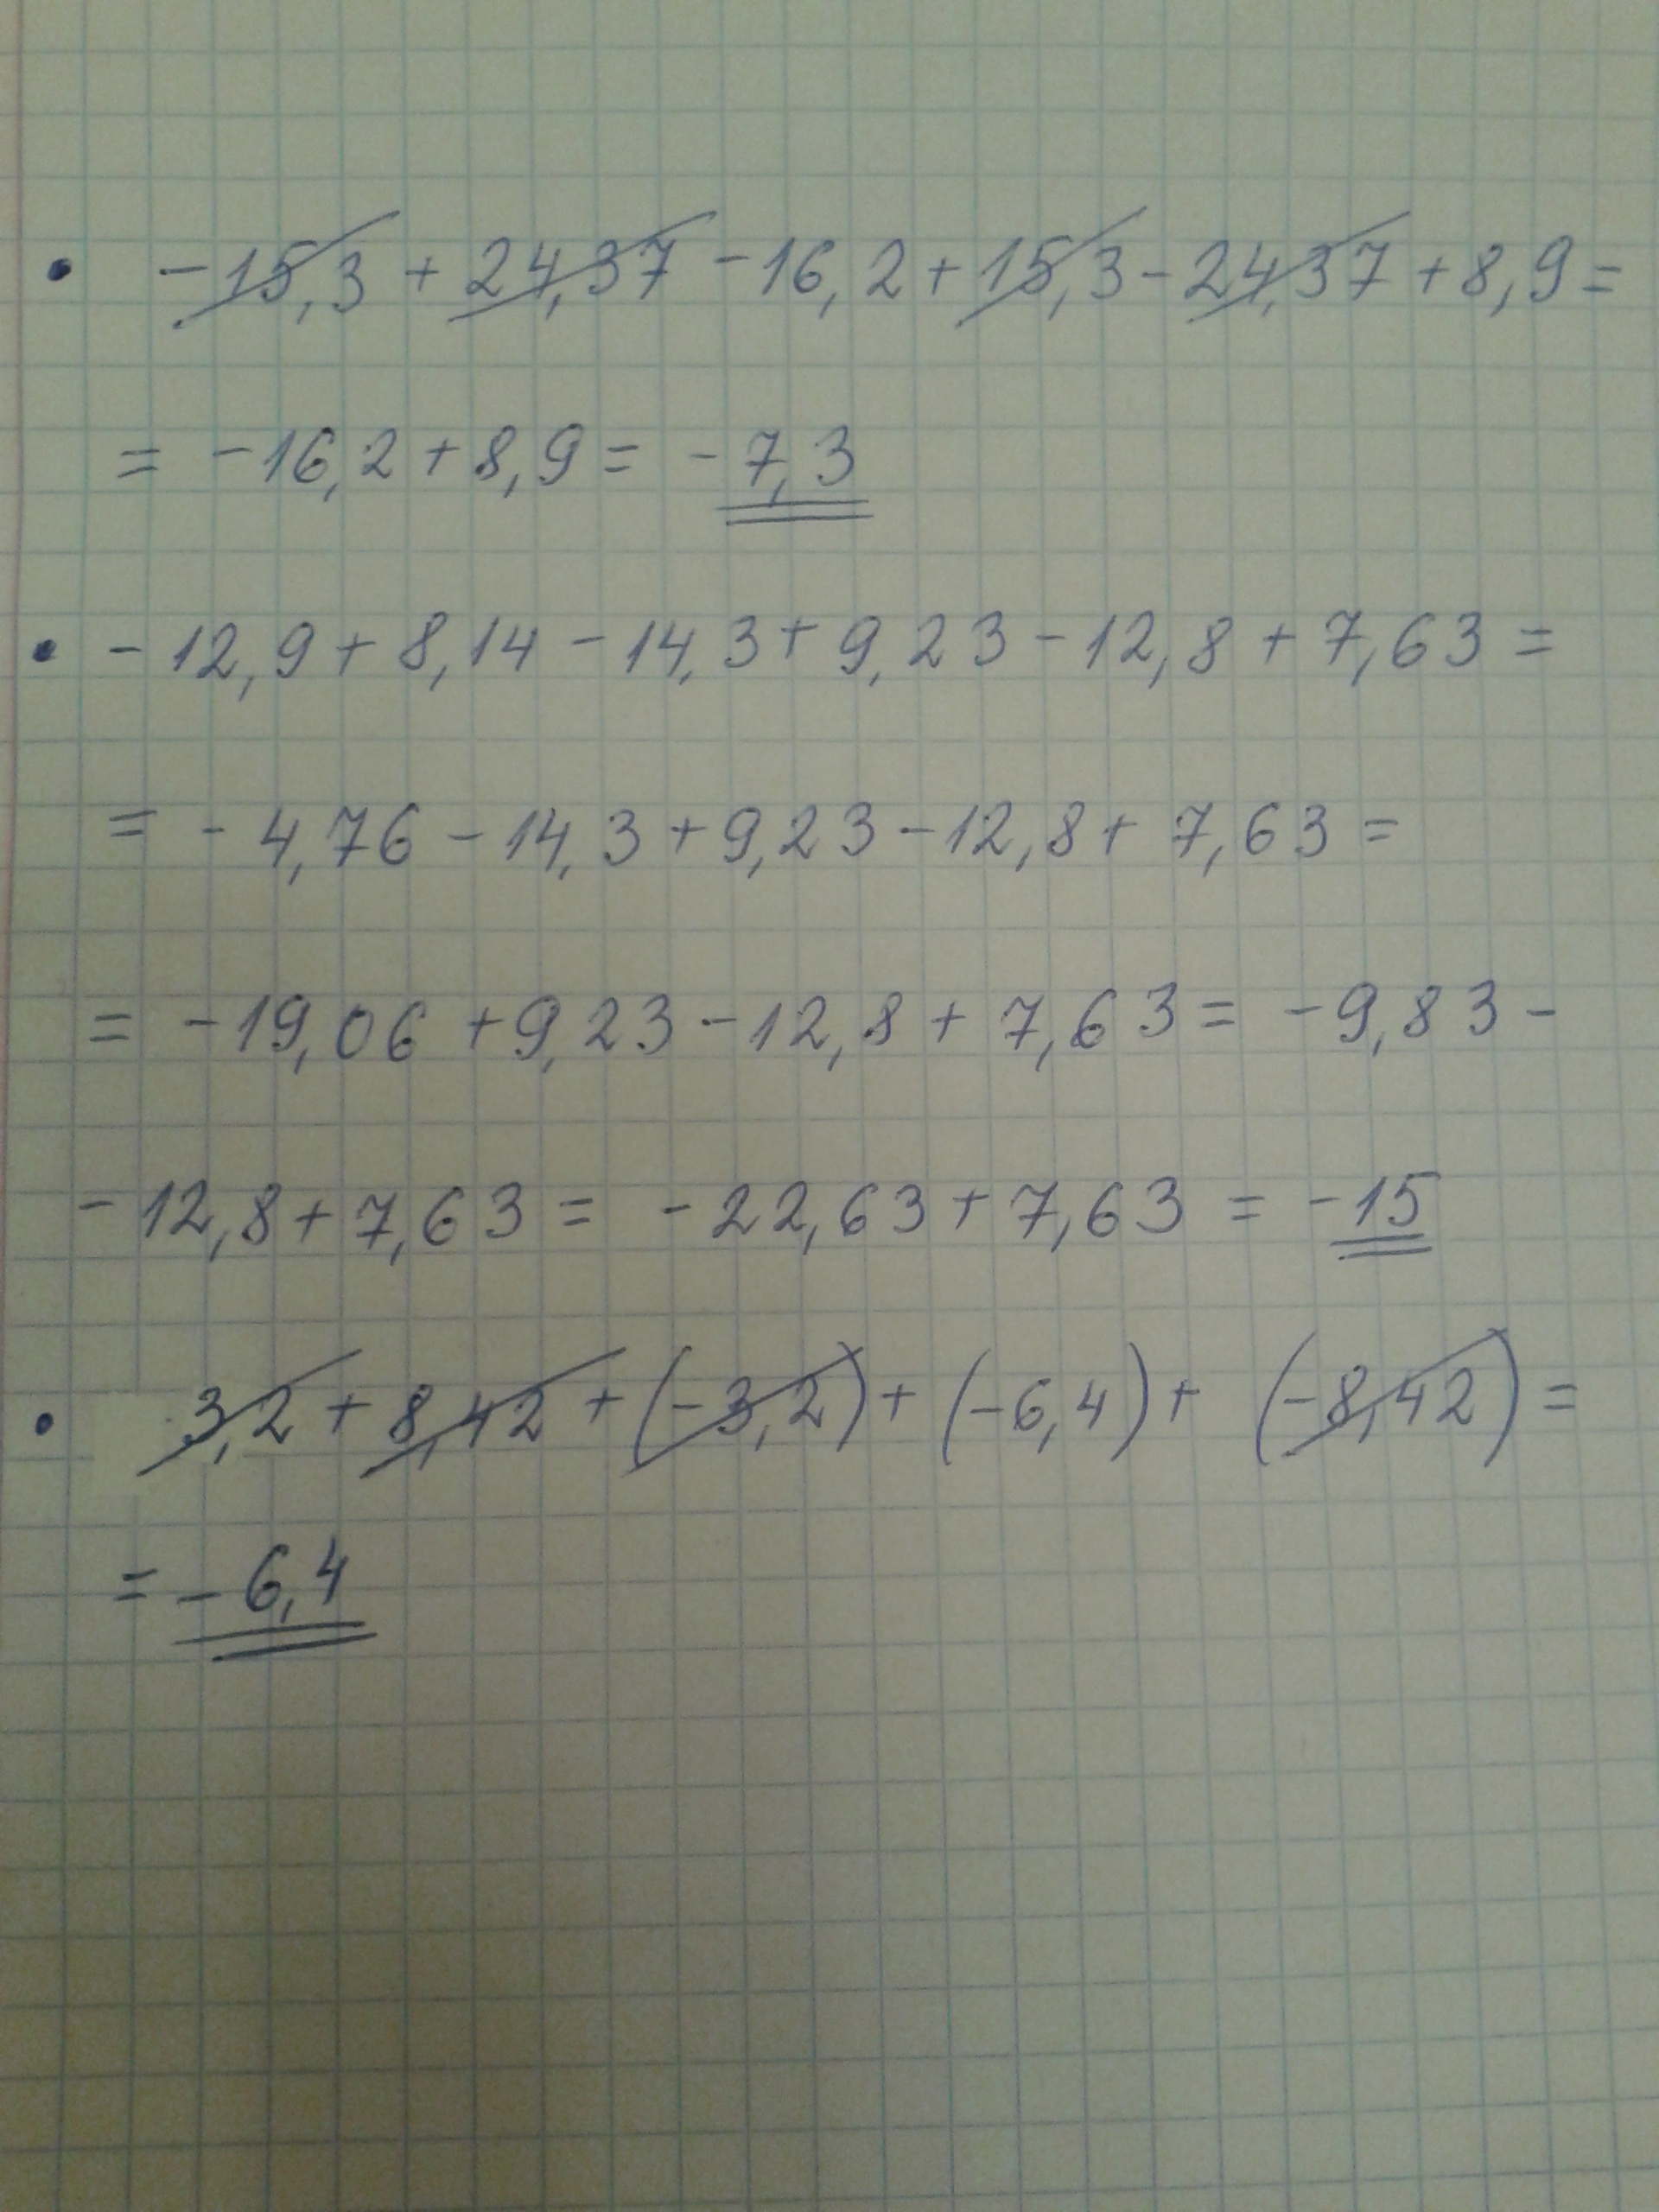 • -15,3 + 24,37 - 16,2 + 15,3 - 24,37 + 8,9 =
= -16,2 + 8,9 = -7,3
• -12,9 + 8,14 - 14,3 + 9,23 - 12,8 + 7,63 =
= -4,76 - 14,3 + 9,23 - 12,8 + 7,63 =
= -19,06 + 9,23 - 12,8 + 7,63 = -9,83 -
- 12,8 + 7,63 = -22,63 + 7,63 = -15
• 3,2 + 8,42 + (-3,2) + (-6,4) + (-8,42) =
= -6,4